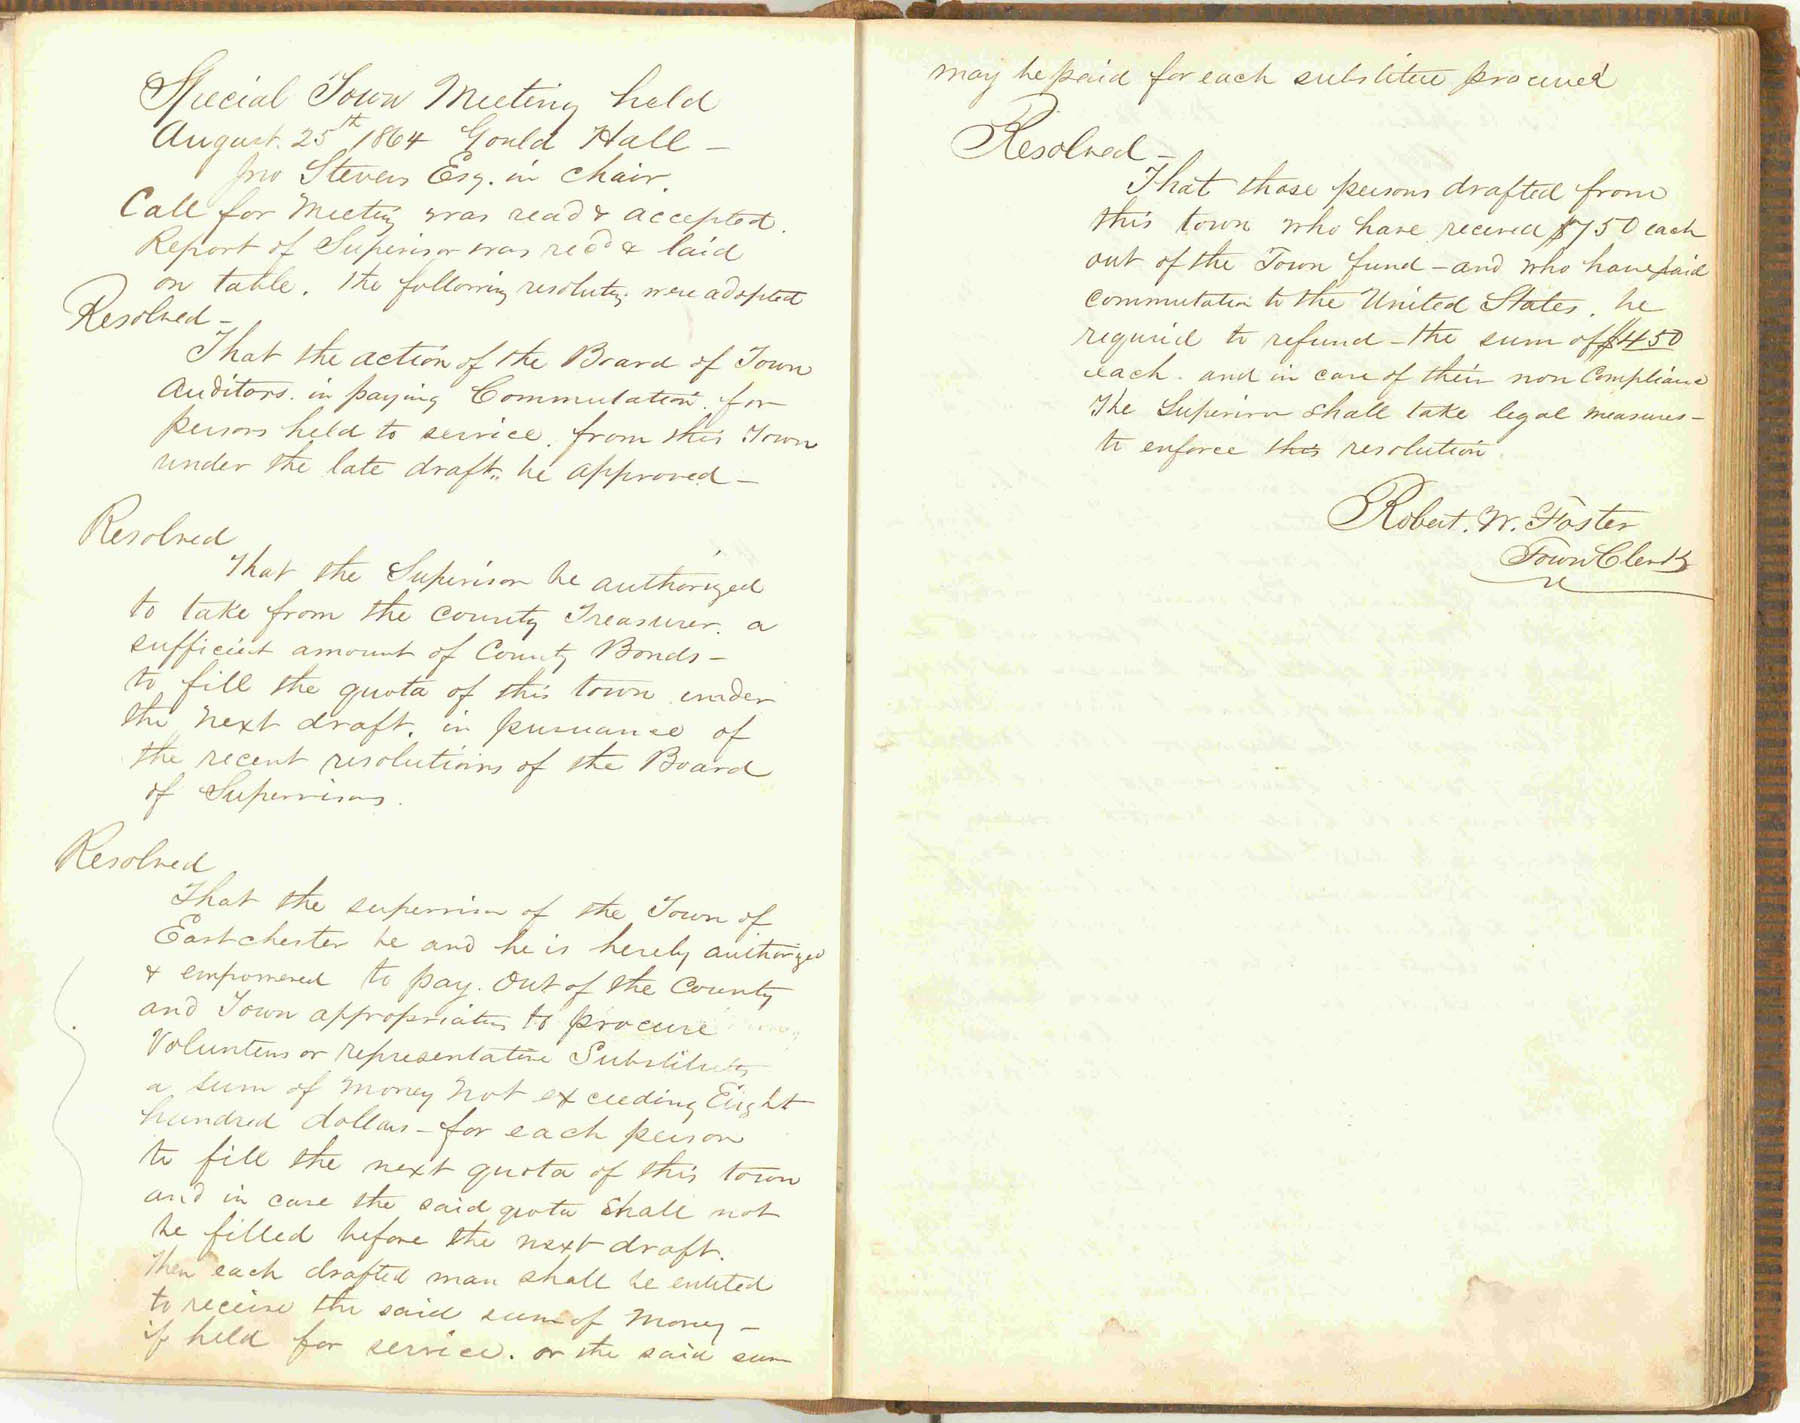 Special Town Meeting held
August. 25th 1864 Gould Hall –
Jno Stevens Esq. in Chair.
Call for Meeting was read & accepted.
Report of Supervisor was recd & laid
on table. The following resolutns. were adopted
Resolved –
That the action of the Board of Town
Auditors. in paying Commutation. for
persons held to service. from this Town
under the late draft, be approved –
Resolved
That the Supervisor be authorized
to take from the County Treasurer. a
sufficient amount of County Bonds –
to fill the quota of this town under
the next draft. in pursuance of
the recent resolutions of the Board
of Supervisors.
Resolved
That the supervisor of the Town of
Eastchester be and he is hereby authorized
& empowered to pay. Out of the County
and Town appropriation to procure
Volunteers or representative Substitutes
a sum of money not exceeding Eight
hundred dollars – for each person
to fill the next quota of this town
and in case the said quota shall not
be filled before the next draft.
Then each drafted man shall be entitled
to receive the said sum of money –
if held for service. or the said sum
may be paid for each substitute procured
Resolved –
That those persons drafted from
this town who have received $750 each
out of the Town fund – and who have paid
Commutation to the United States. be
required to refund – the sum of $450
each. and in case of their non Compliance
The Supervisor shall take legal measures –
to enforce this resolution.
Robert. W. Foster
Town Clerk